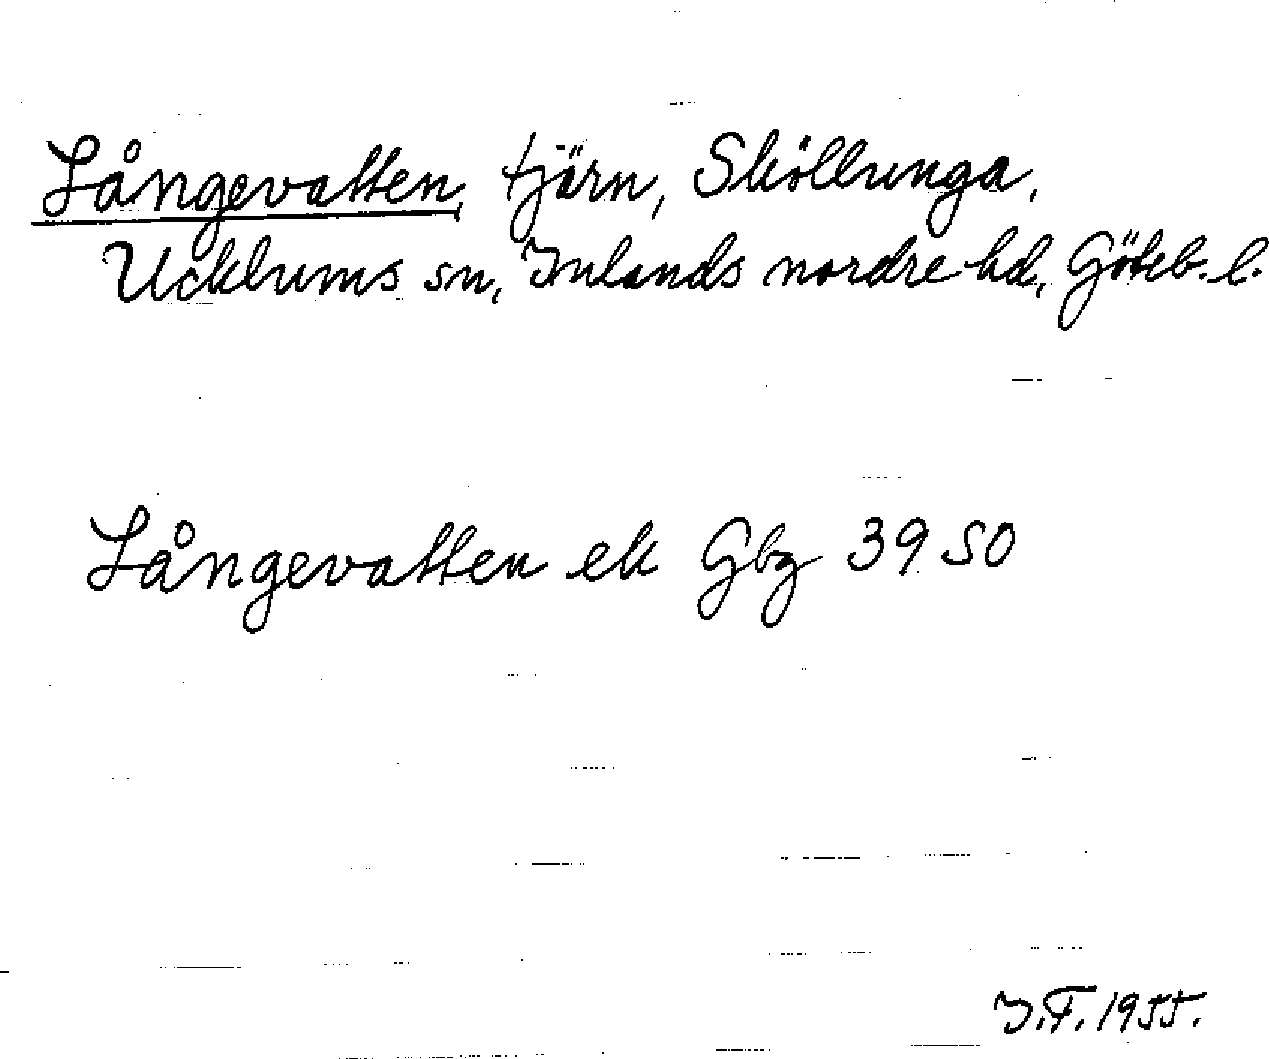 Långevatten, tjärn, Sköllunga,
Ucklums sn, Inlands nordre hd, Göteb. l.
Långevatten ek Gbg 39 50
I.F. 1955.